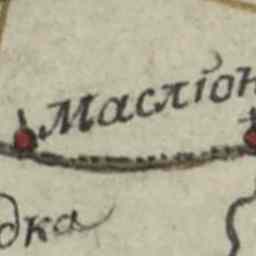 Масліон
дка